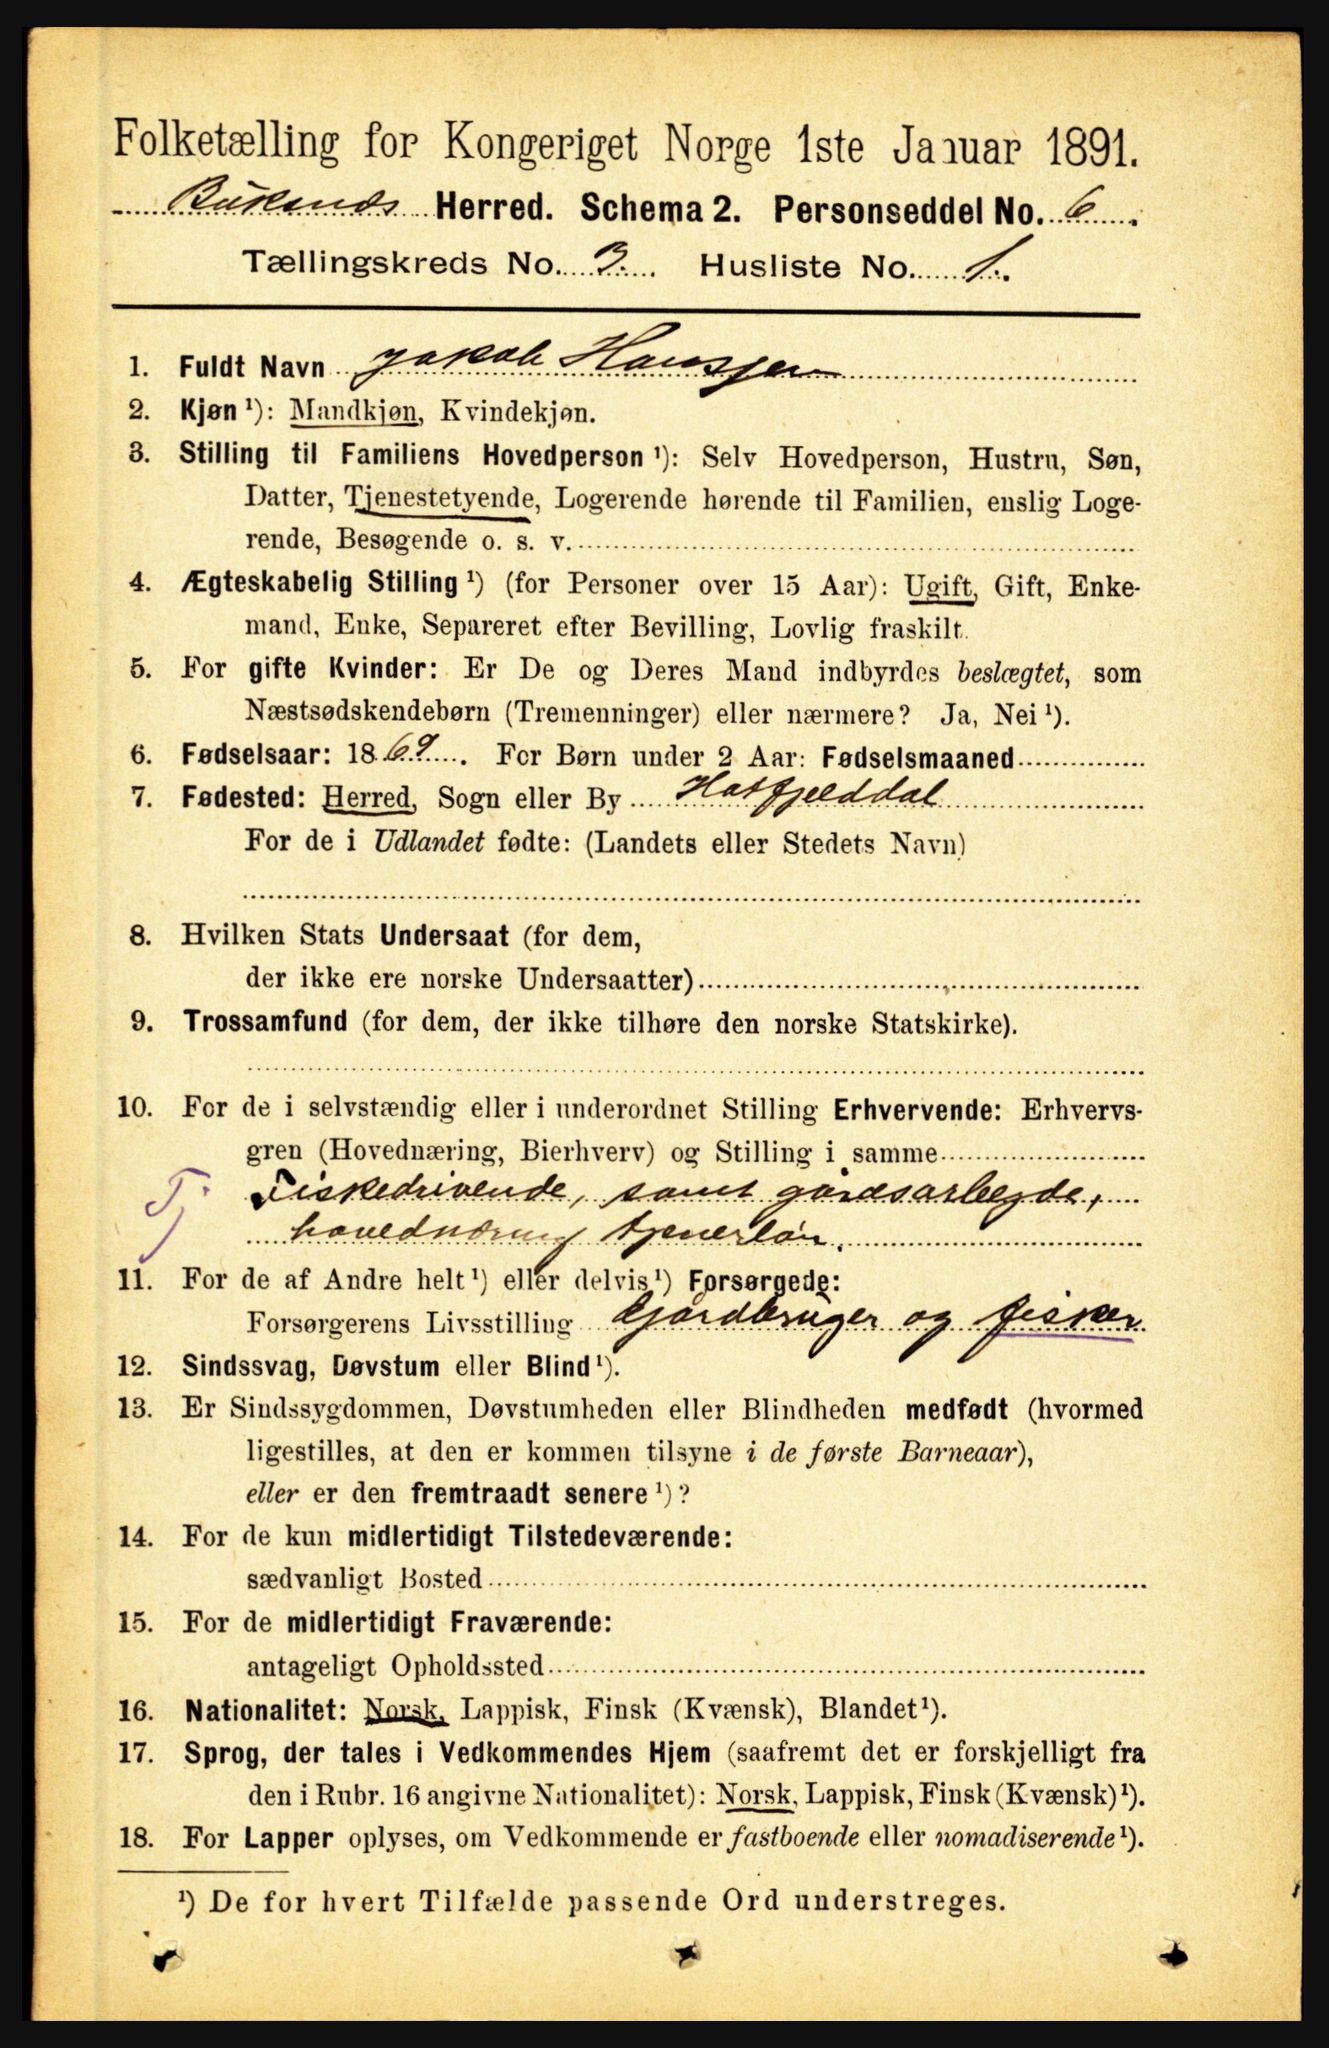 Folketælling for Kongeriget Norge 1ste Januar 1891.
Buksnæs Herred. Schema 2. Personseddel No. 6
Tællingskreds No. 3. Husliste No. 1.
1. Fuldt Navn Jakob Hanssen
2. Kjøn ¹): Mandkjøn, Kvindekjøn.
3. Stilling til Familiens Hovedperson ¹): Selv Hovedperson, Hustru, Søn,
Datter, Tjenestetyende, Logerende hørende til Familien, enslig Loge-
rende, Besøgende o. s. v.
4. Ægteskabelig Stilling ¹) (for Personer over 15 Aar): Ugift, Gift, Enke-
mand, Enke, Separeret efter Bevilling, Lovlig fraskilt.
5. For gifte Kvinder: Er De og Deres Mand indbyrdes beslægtet, som
Næstsødskendebørn (Tremenninger) eller nærmere? Ja, Nei ¹).
6. Fødselsaar: 1869. For Børn under 2 Aar: Fødselsmaaned
7. Fødested: Herred, Sogn eller By Hatfjelddal
For de i Udlandet fødte: (Landets eller Stedets Navn)
8. Hvilken Stats Undersaat (for dem,
der ikke ere norske Undersaatter)
9. Trossamfund (for dem, der ikke tilhøre den norske Statskirke).
10. For de i selvstændig eller i underordnet Stilling Erhvervende: Erhvervs-
gren (Hovednæring, Bierhverv) og Stilling i samme
Tj Fiskedrivende, samt gårdsarbeide,
hovednæring tjenerløn.
11. For de af Andre helt ¹) eller delvis ¹) Forsørgede:
Forsørgerens Livsstilling Gjårdbruger og fisker
12. Sindssvag, Døvstum eller Blind ¹).
13. Er Sindssygdommen, Døvstumheden eller Blindheden medfødt (hvormed
ligestilles, at den er kommen tilsyne i de første Barneaar),
eller er den fremtraadt senere ¹)?
14. For de kun midlertidigt Tilstedeværende:
sædvanligt Bosted
15. For de midlertidigt Fraværende:
antageligt Opholdssted
16. Nationalitet: Norsk, Lappisk, Finsk (Kvænsk), Blandet ¹).
17. Sprog, der tales i Vedkommendes Hjem (saafremt det er forskjelligt fra
den i Rubr. 16 angivne Nationalitet): Norsk, Lappisk, Finsk (Kvænsk) ¹).
18. For Lapper oplyses, om Vedkommende er fastboende eller nomadiserende ¹).
¹) De for hvert Tilfælde passende Ord understreges.